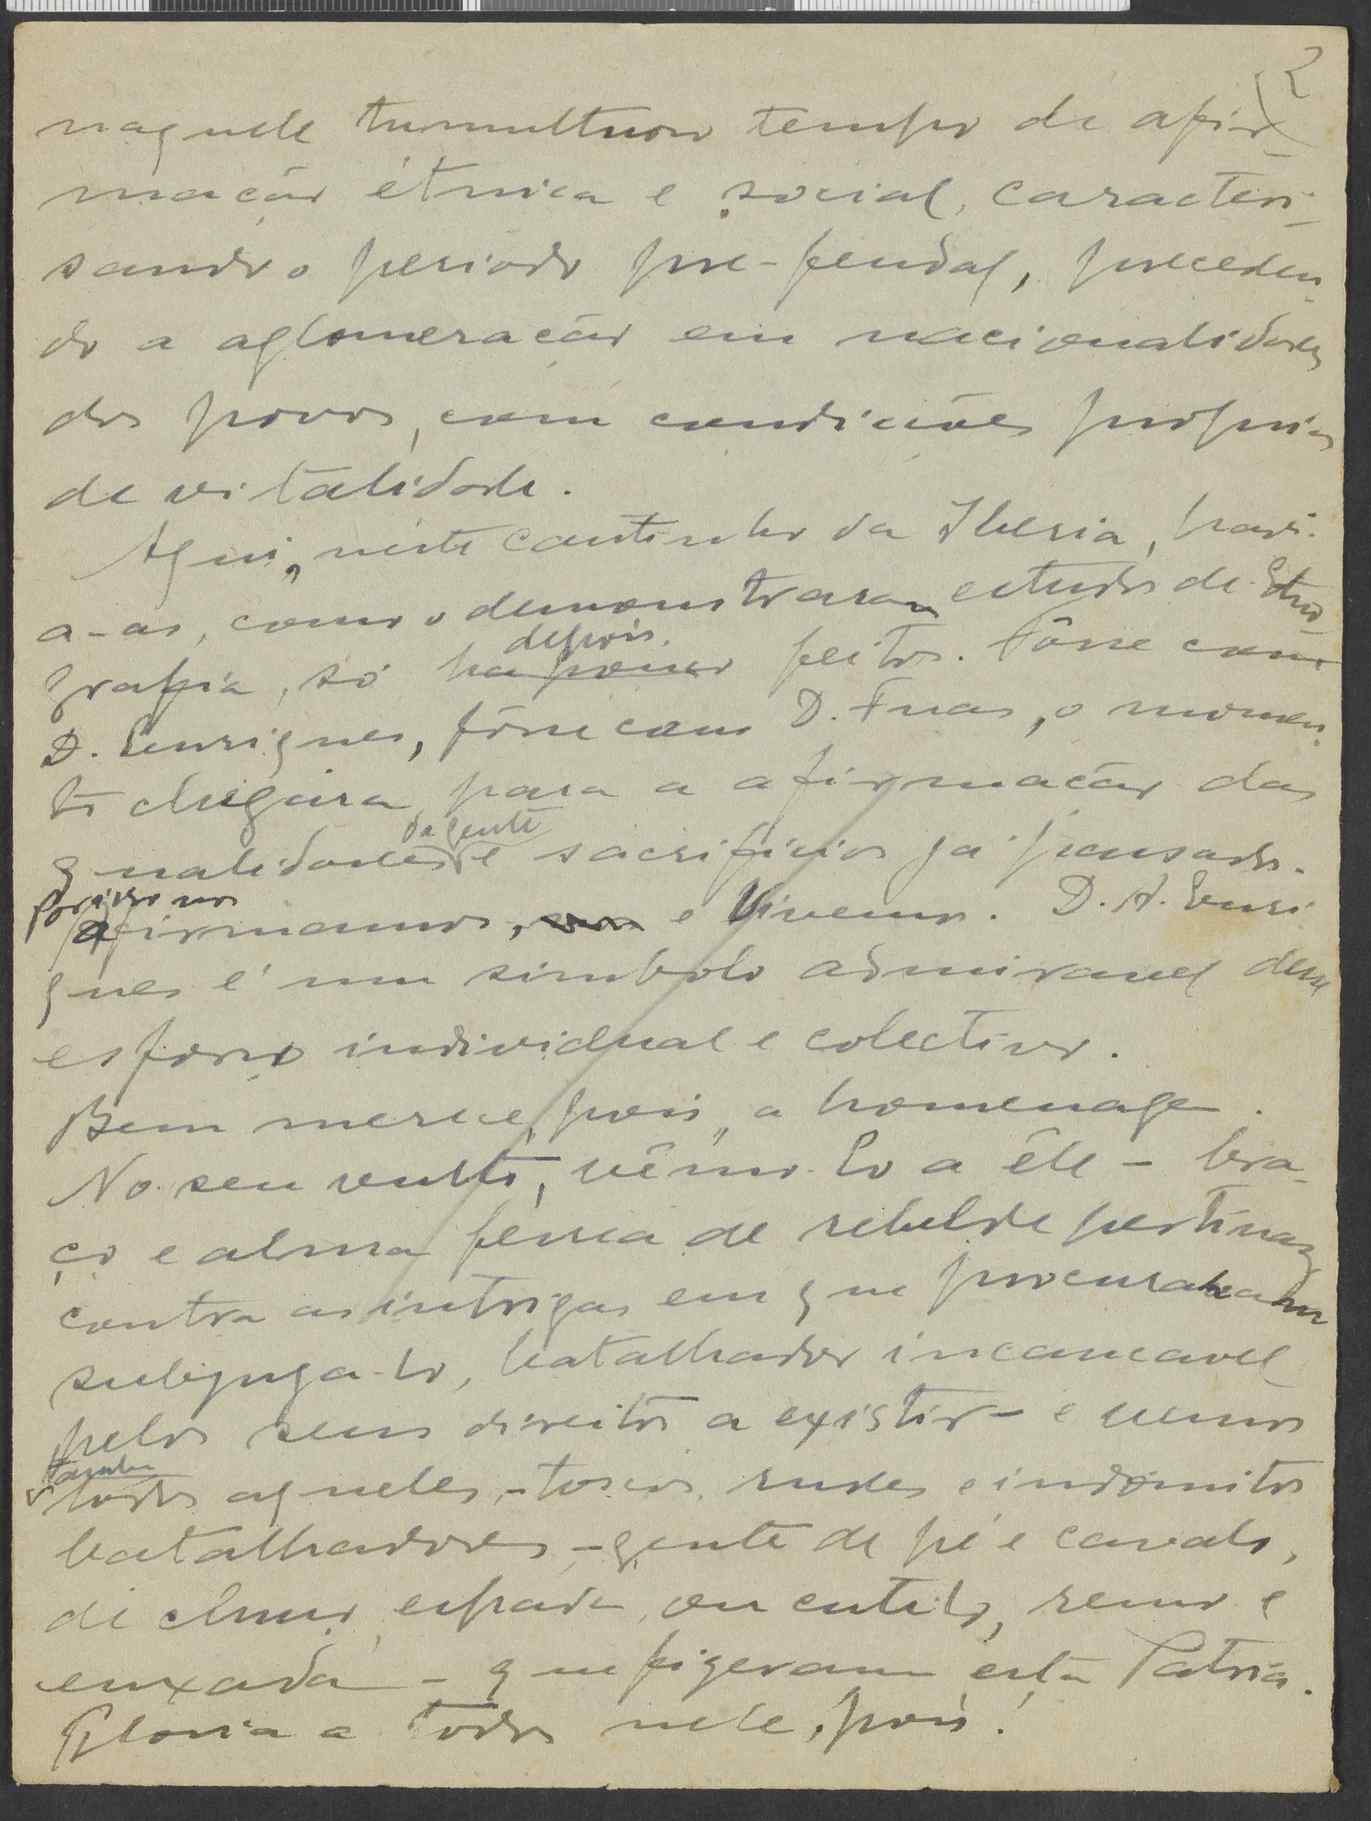 2
naquele tumultuoso tempo de afir-
mação étnica e social, caracteri-
sando o periodo pre-feudal, preceden-
do a aglomeração em nacionalidades
dos povos, com condições proprias
de vitalidade.
Aqui, neste cantinho da Iberia, havi-
a-as, como o demonstraram estudos de Etno-
grafia, só depois ha pouco feitos. Fôsse com
D. Enriques, fôsse com D. Fuas, o momen-
to chegára para a afirmação das
qualidades da gente e sacrificios já
Por isso nos afirmamos, e vivemos. D. A. Enri-
ques é um simbolo admiravel desse
esforço individual e colectivo.
Bem merece, pois, a homenagem.
No seu vulto, vêmo-lo a êle - bra-
ço e alma ferrea de rebelde pertinaz
contra as intrigas em que procuravam
subjuga-lo, batalhador incansavel
pelos seus direitos a existir - e vemos
tambem todos aqueles, - toscos, rudes e indomitos
batalhadores - gente de pé e cavalo,
de chuço, espada, ou cutelo, remo e
enxada - que fizeram esta Patria.
Gloria a todos nele, pois!